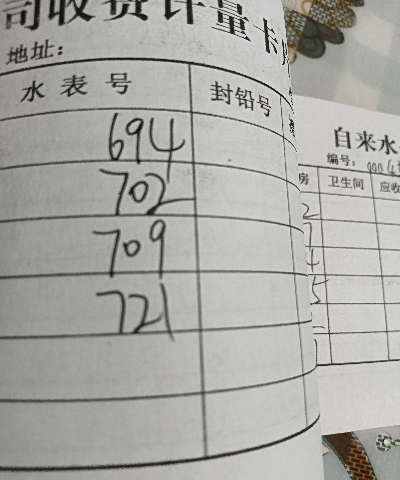 司收费计量卡
地址：
水表号 封铅号
694
702
709
721
自来水
编号：
房 卫生间 应收
2
4
5